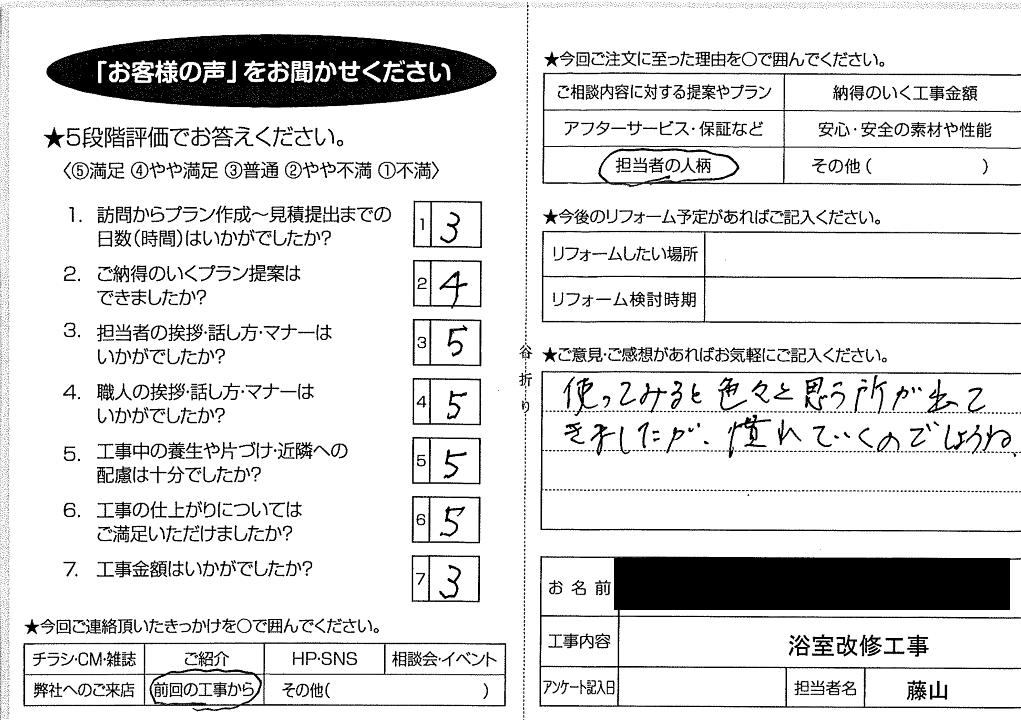 「お客様の声」をお聞かせください
★5段階評価でお答えください。
〈⑤満足 ④やや満足 ③普通 ②やや不満 ①不満〉
1. 訪問からプラン作成～見積提出までの
日数(時間)はいかがでしたか?
1 3
2. ご納得のいくプラン提案は
できましたか?
2 4
3. 担当者の挨拶・話し方・マナーは
いかがでしたか?
3 5
4. 職人の挨拶・話し方・マナーは
いかがでしたか?
4 5
5. 工事中の養生や片づけ・近隣への
配慮は十分でしたか?
5 5
6. 工事の仕上がりについては
ご満足いただけましたか?
6 5
7. 工事金額はいかがでしたか?
7 3
★今回ご連絡頂いたきっかけを○で囲んでください。
チラシ・CM・雑誌 ご紹介 HP・SNS 相談会・イベント
弊社へのご来店 前回の工事から その他( )
谷折り
★今回ご注文に至った理由を○で囲んでください。
ご相談内容に対する提案やプラン 納得のいく工事金額
アフターサービス・保証など 安心・安全の素材や性能
担当者の人柄 その他( )
★今後のリフォーム予定があればご記入ください。
リフォームしたい場所
リフォーム検討時期
★ご意見・ご感想があればお気軽にご記入ください。
使ってみると色々と思う所が出て
きましたが、慣れていくのでしょうね、
お名前
工事内容 浴室改修工事
アンケート記入日 担当者名 藤山